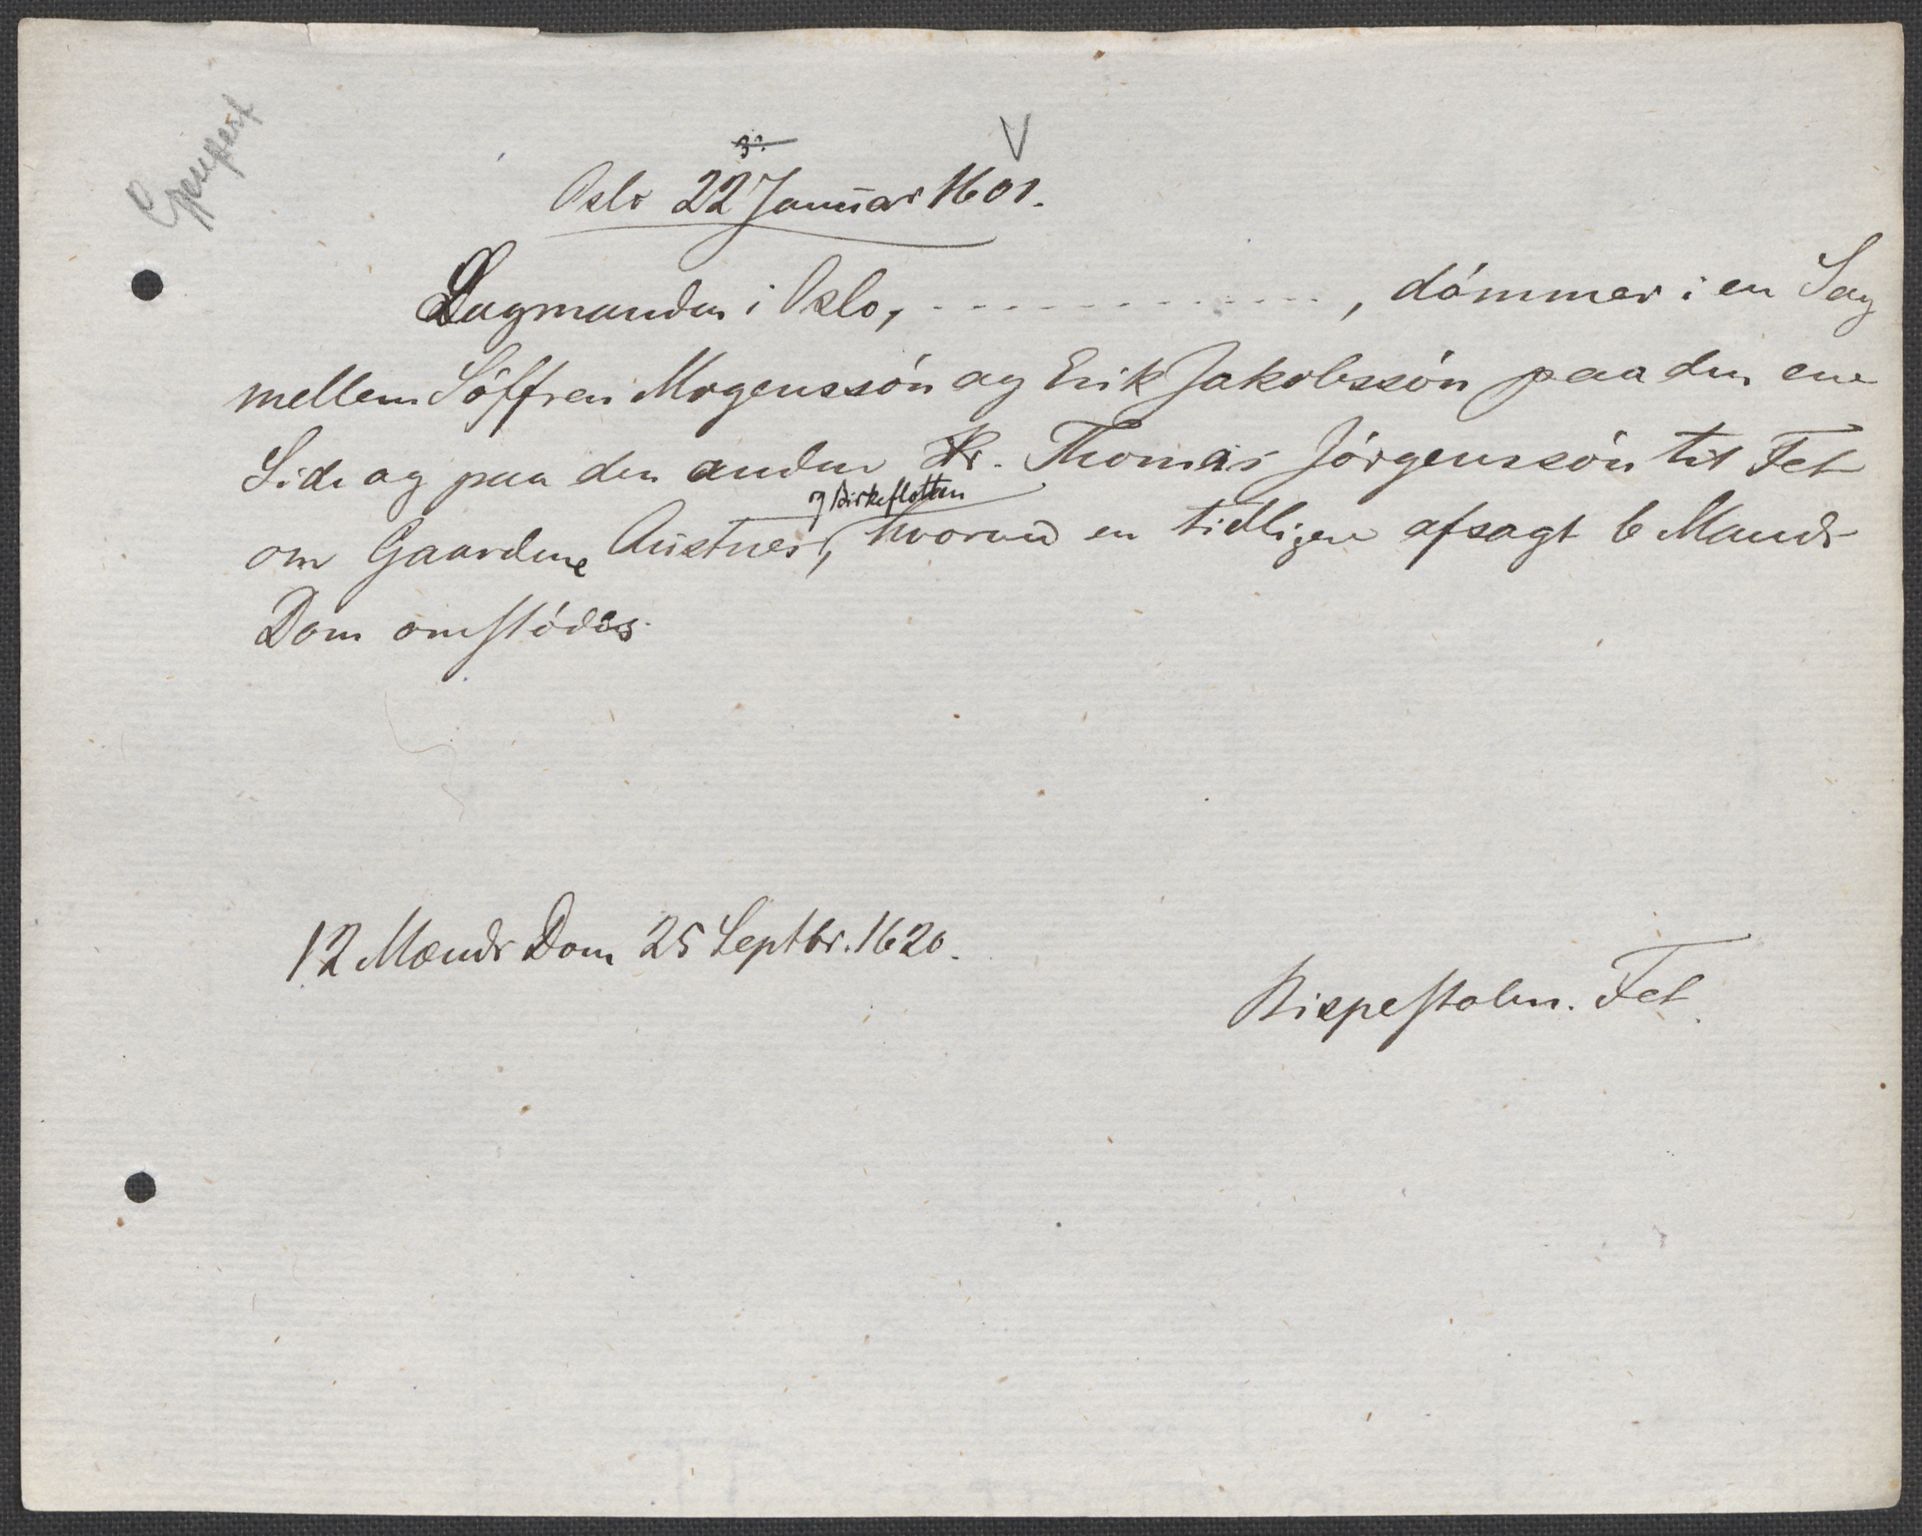 Gjenpart
3? V
Oslo 22 Januar 1601.
Lagmanden i Oslo, - - - - - - - - - - - - -, dómmer i en Sag
mellem Sóffren Mogenssón og Erik Jakobssón paa den ene
Side og paa den anden Hr. Thomas Jórgenssón til Fet
og Birkeflotten
om Gaardene Austnes, hvorved en tidligere afsagt 6 Mands
Dom omstódes.
12 Mænds Dom 25 Septbr. 1620.
Bispestolen. Fet.